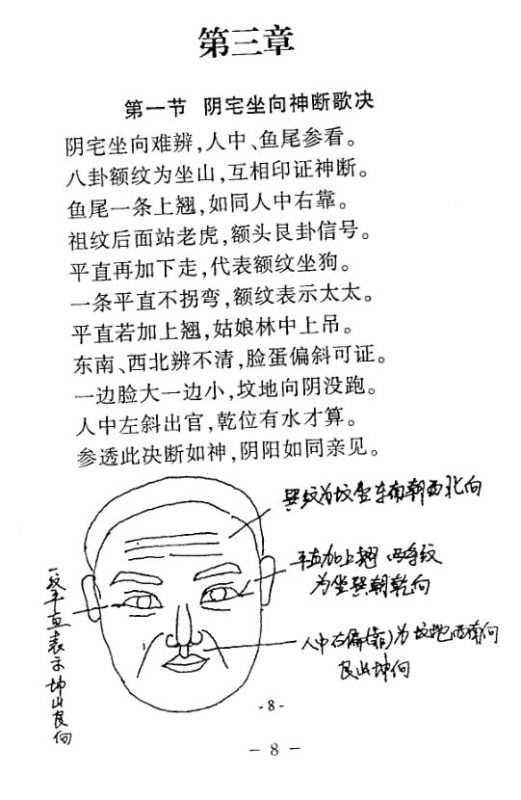 第三章
第一节 阴宅坐向神断歌决
阴宅坐向难辨,人中、鱼尾参看。
八卦额纹为坐山,互相印证神断。
鱼尾一条上翘,如同人中右靠。
祖纹后面站老虎,额头艮卦信号。
平直再加下走,代表额纹坐狗。
一条平直不拐弯,额纹表示太太。
平直若加上翘,姑娘林中上吊。
东南、西北辨不清,脸蛋偏斜可证。
一边脸大一边小,坟地向阴没跑。
人中左斜出官,乾位有水才算。
参透此决断如神,阴阳如同亲见。
巽纹为坟坐东南朝西北向
平直加上翘 两条纹
为坐巽朝乾向
人中右偏(靠)为坟地西南向
艮山坤向
平直表示坤山艮向
-8-
- 8 -